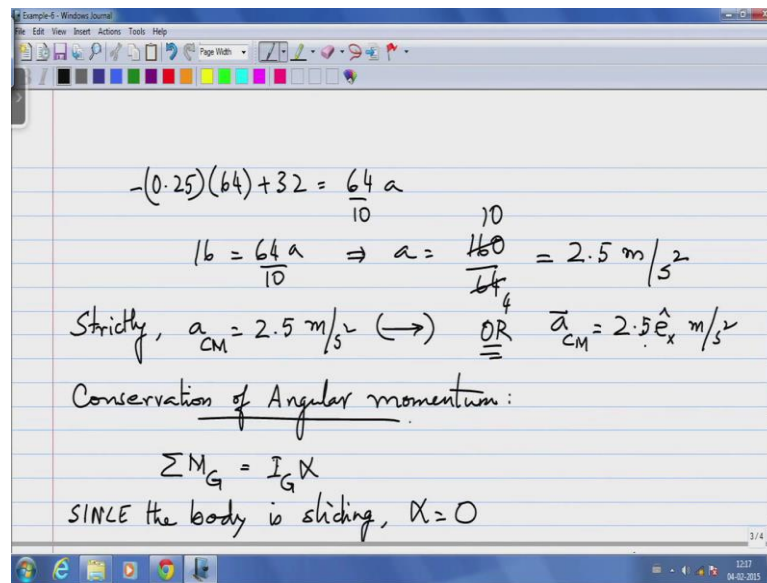 Example-6 - Windows Journal
File Edit View Insert Actions Tools Help
Page Width
-(0.25)(64) + 32 = 64/10 a
16 = 64 a/10 ⇒ a = 160/64 10/4 = 2.5 m/s²
Strictly, a_CM = 2.5 m/s² (→) OR a̅_CM = 2.5 ê_x m/s²
Conservation of Angular momentum:
ΣM_G = I_G α
SINCE the body is sliding, α = 0
3/4
12:17
04-02-2015